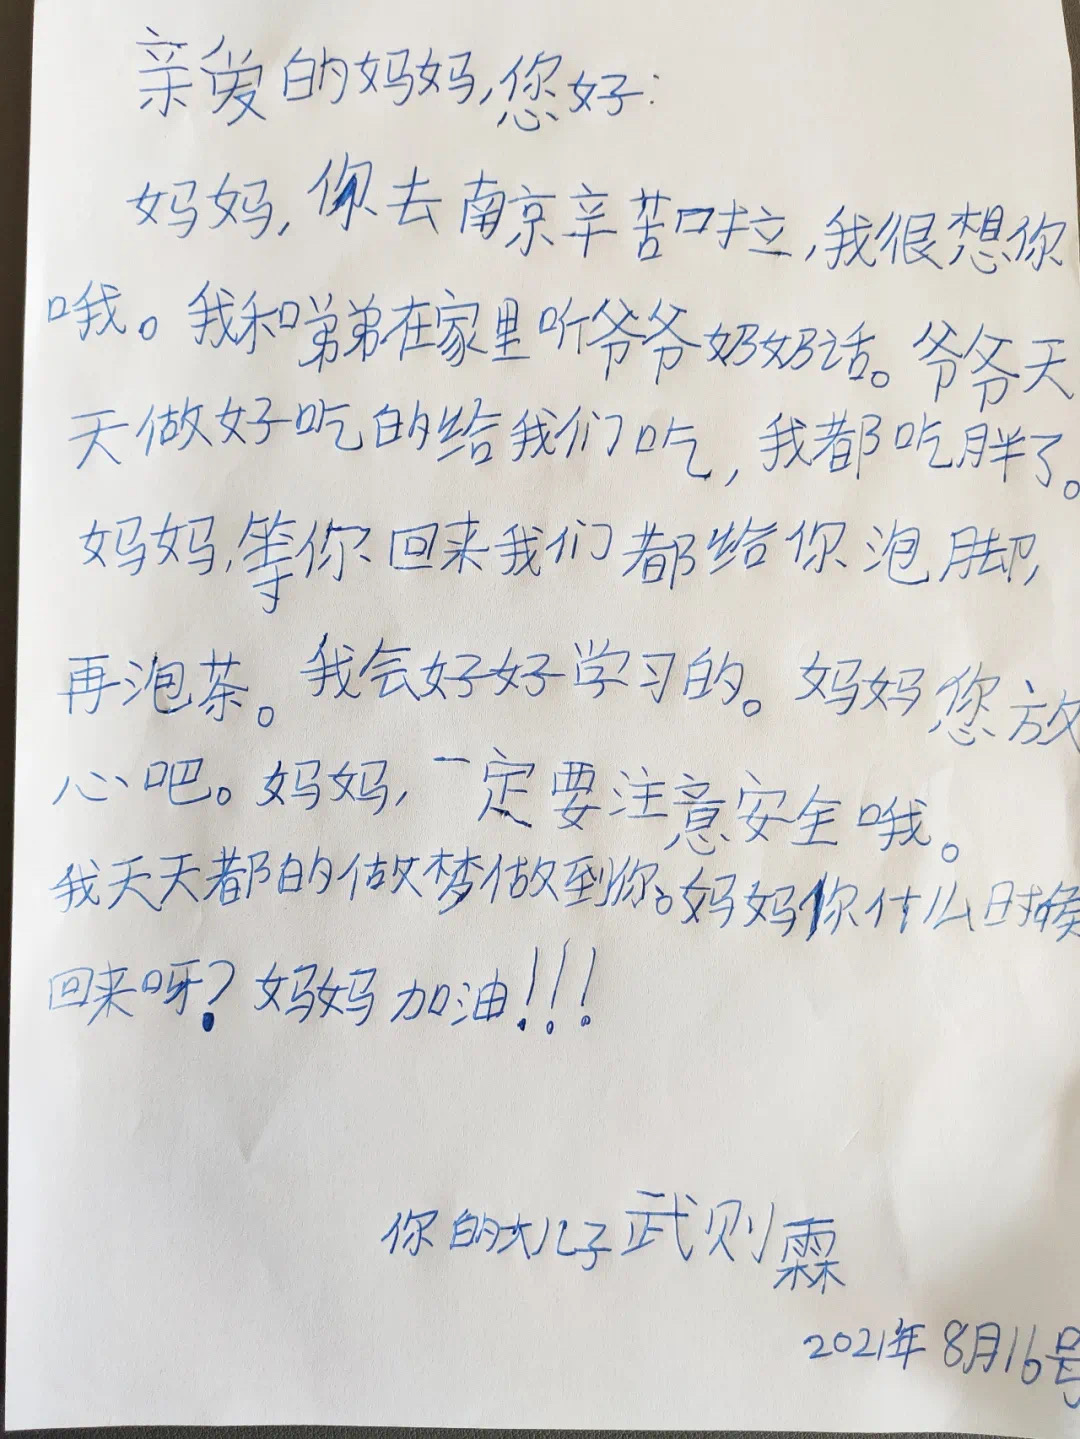 亲爱的妈妈,您好:
妈妈,你去南京辛苦啦,我很想你
哦。我和弟弟在家里听爷爷奶奶话。爷爷天
天做好吃的给我们吃,我都吃胖了。
妈妈,等你回来我们都给你泡脚,
再泡茶。我会好好学习的。妈妈您放
心吧。妈妈,一定要注意安全哦。
我天天都的做梦做到你。妈妈你什么时候
回来呀?妈妈加油!!!
你的大儿子武则霖
2021年8月16号